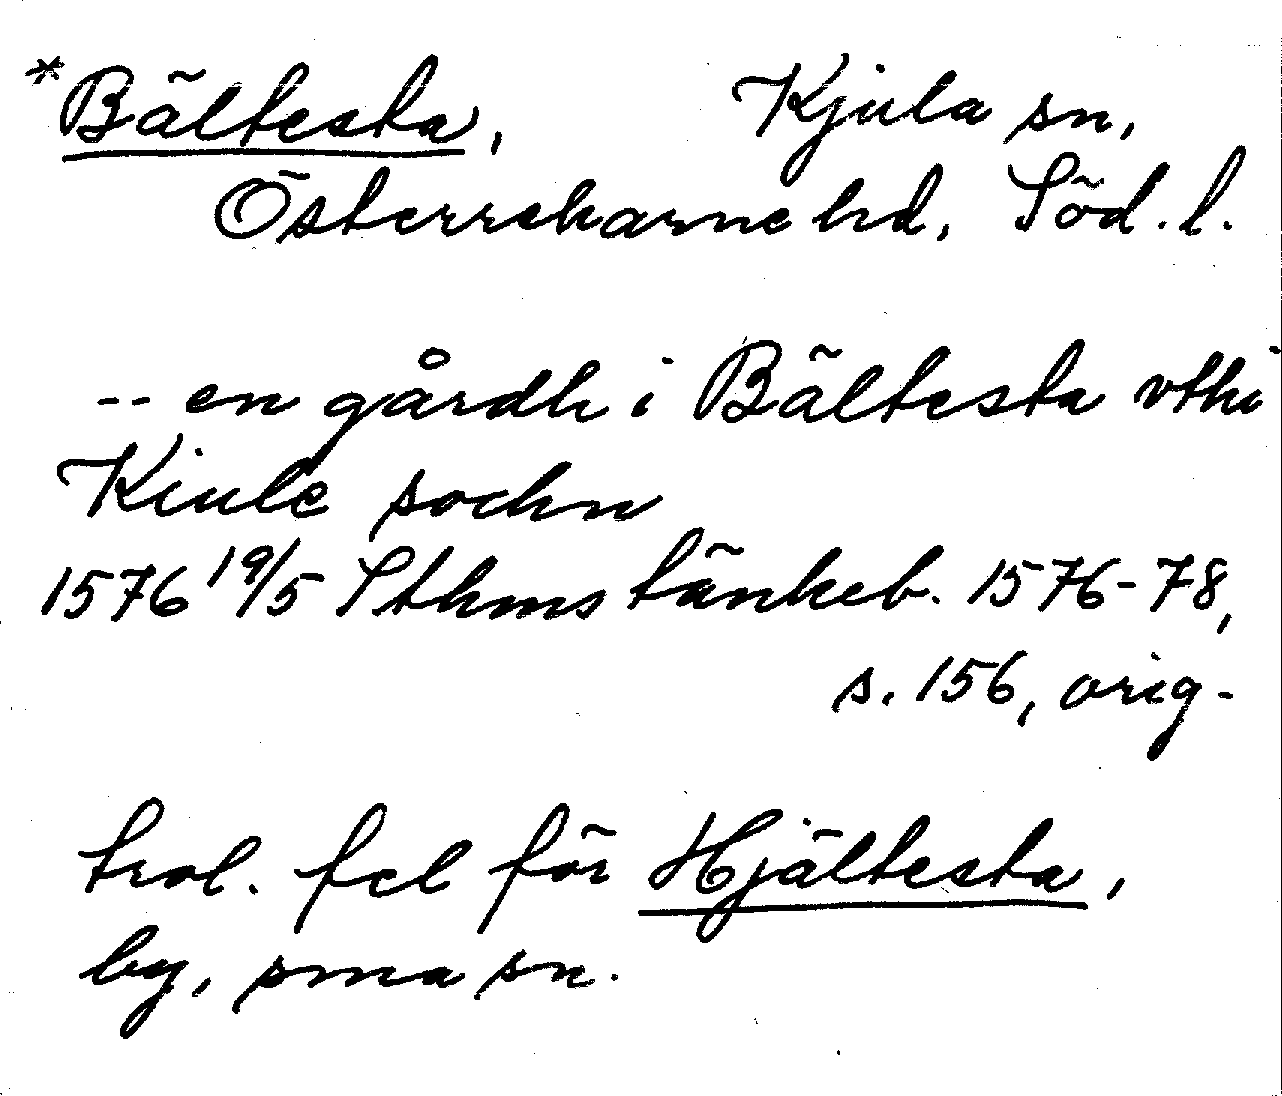 *Bältesta, Kjula sn,
Österrekarne hd, Söd. l.
-- en gårdh i Bältesta vthi
Kiule sochn
1576 19/5 Sthms tänkeb. 1576-78,
s. 156, orig-
trol. fel för Hjältesta,
by, sma sn.